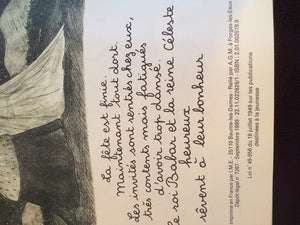 La fête est finie.
Maintenant tout dort.
Les invités sont rentrés chez eux,
très contents mais fatigués
d'avoir trop dansé.
Le roi Babar et la reine Céleste
heureux
rêvent à leur bonheur
Imprimé en France par I.M.E. - 25110 Baume-les-Dames - Relié par A.G.M. à Forges-les-Eaux
Dépôt légal n° - Septembre 1999 - ISBN :
Loi n° 49.956 du 16 juillet 1949 sur les publications
destinées à la jeunesse